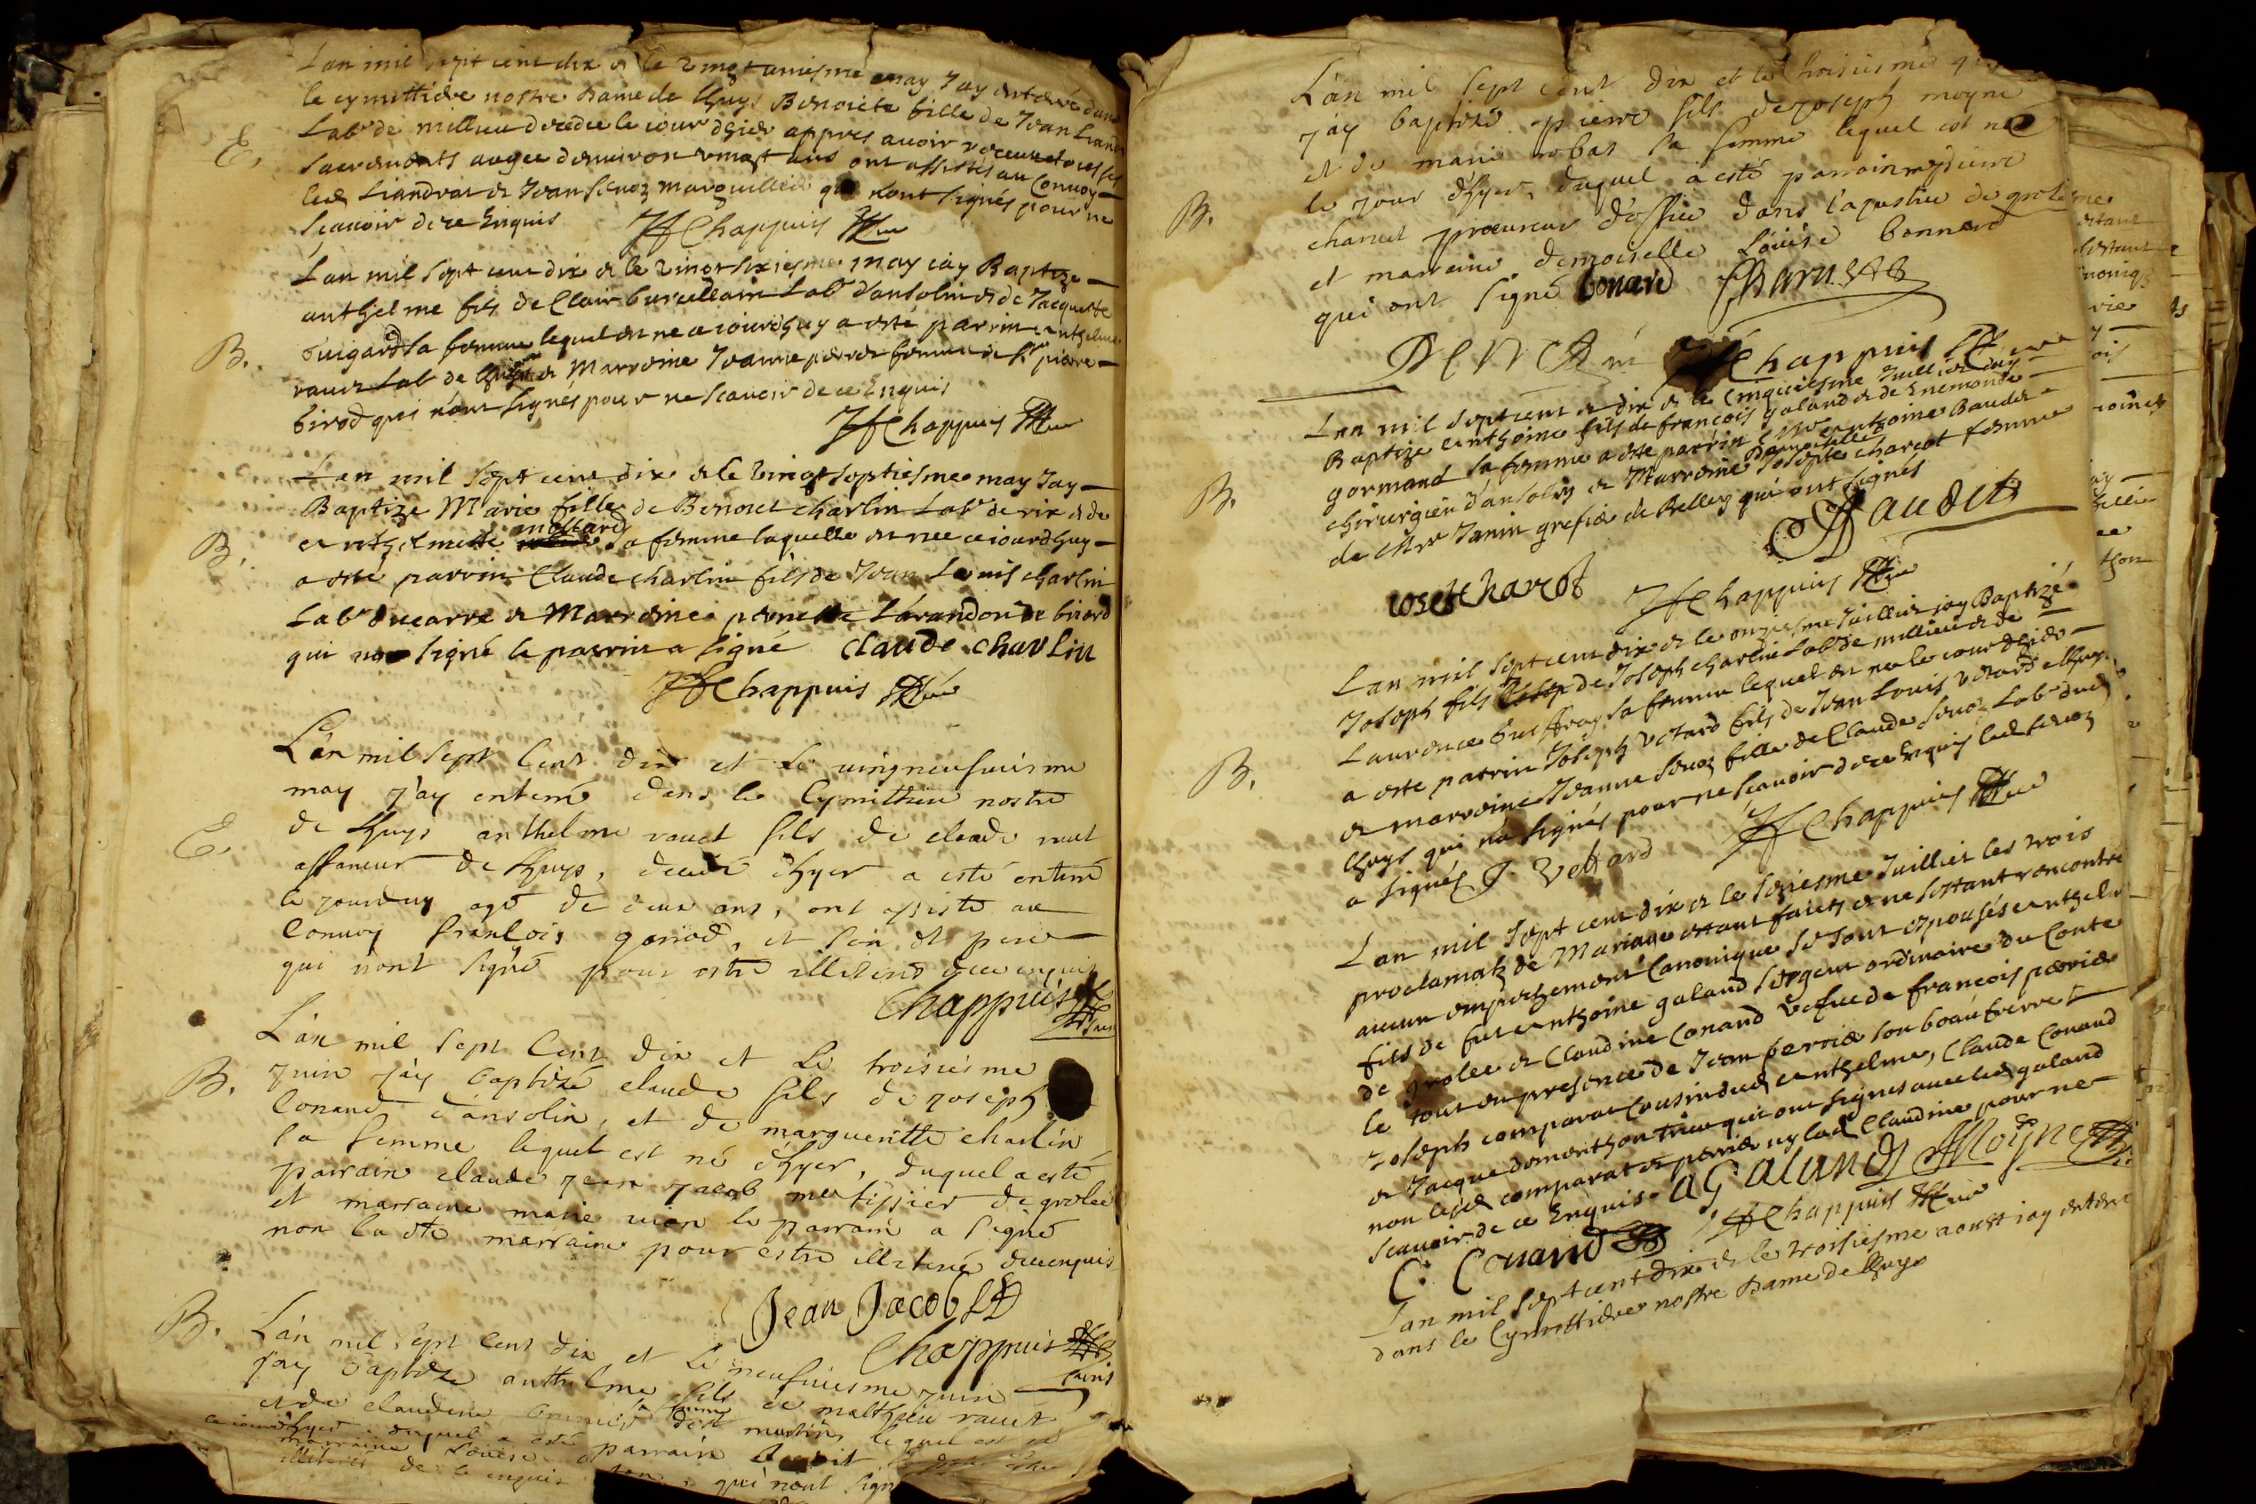 L'an mil sept cent dix & le vingt uniesme may Jay enterré dans
le cymittiere nostre Dame de Lhuys Benoiste fille de Jean
Labr de millieu decedee le iour dhier appres avoir receu tous ses
E. sacrements aagee denviron vingt ans ont assistés au convoy
led Liandrat & Jean Seuoz marguillier qui nont signés pour ne
scauoir de ce Enquis JfChappuis
L'an mil sept cent dix & le vingt sixiesme may iay Baptize
anthelme fils de Clair burcellain Labr dansolin & de Jacquette
Guigard sa femme lequel est ne ce iourdhuy a esté parrin anthelme
B. rauet Labr de Lhuys & Marreine Jeanne femme de pierre
birod qui n'ont signés pour ne scauoir de ce Enquis
JfChappuis
L'an mil sept cent dix & le vingt septiesme may Jay
Baptize Marie fille de Benoict charlin Labr de rix & de
mollard
B. anthelmette sa femme laquelle est nee ce iourdhuy
a esté parrin Claude charlin fils de Jean Louis charlin
Labr & Marreine pernette Lárandon de birod
qui non signé le parrin a signé Claude Charlin
JfChappuis
L'an mil sept Cent dix et le uingneufuiesme
may j'ay enterré dans le Cymithiere nostre
de Lhuys anthelme rauet fils de claude rauet
E. affaneur de Lhuys, decedé dhyer a esté enterré
le jourduy agé de deux ans, ont assisté au
Conuoy françois gorrod, et son dt pere
qui n'ont signé pour estre illiteres de ce enquis
Chappuis
L'an mil sept Cent dix et le troisiesme
B. juin j'ay baptizé claude fils de joseph
Conand d'ansolin, et de margueritte charlin
sa femme lequel est né dhyer, duquel a esté
parrain claude jean jacob me tissier de grolée
et marraine marie le parrain a signé
non la dte marraine pour estre illiterée de ce enquis
Jean Jacob
Chappuis
B. L'an mil sept Cent dix et le neufuiesme juin
j'ay baptize anthelme fils de matthieu rauet
et de claudine sa femme lequel est né
duquel a esté parrain
marraine Louise qui n'ont signé
illiteres de ce enquis
L'an mil sept cent dix et le troisiesme
j'ay baptizé pierre fils de joseph moyne
et de marie robat sa femme lequel est né
B. le jour d'hyer, duquel a esté parrain mr pierre
charuet procureur d'office dans la de
et marreine demoiselle Louise bonnard
qui ont signé bonard
JfChappuis
L'an mil sept cent & dix & le Cinquiesme Juillet iay
Baptize anthoine fils de francois galand & de Enemonde
B. gormand sa femme a este parrin Mr anthoine Baudet
chirurgien d'ansolin & Marreine Damoiselle Josepte charcot femme
de Mr Janin grefier de Belley qui ont signés
Baudet
ioseptcharcot JfChappuis
L'an mil sept cent dix & le onziesme Juillet jay Baptizé
Joseph fils de Joseph charlin Labr de millieu & de
Laurence Geoffray sa femme lequel est ne le iour dhier
B. a este parrin Joseph Vetard fils de Jean Louis vetard de Lhuys
& marreine Jeanne Seuoz fille de Claude Seuoz Labr dud
Lhuys qui nà signés pour ne scauoir de ce Enquis led
a signés J. Vettard JfChappuis
L'an mil sept cent dix & le seziesme Juillet les trois
proclamats de Mariage estant faicts & ne sestant rencontré
aucun empeschement Canonique se sont espousés anthelme
fils de feu anthoine galand sergent ordinaire du Conte
de grolee & Claudine Conand Vefue de francois perrier
le tout en presence de Jean perrier son beau frerre &
Joseph comparat cousin dud anthelme, Claude Conand
& Jacque qui ont signes auec led galand
non led comparat & perrier ny lad Claudine pour ne
scauoir de ce Enquis AGaland Moyne
C. Conand JfChappuis
L'an mil sept cent dix & le troisiesme aoust iay enterré
dans le Cymittiere nostre Dame de Lhuys